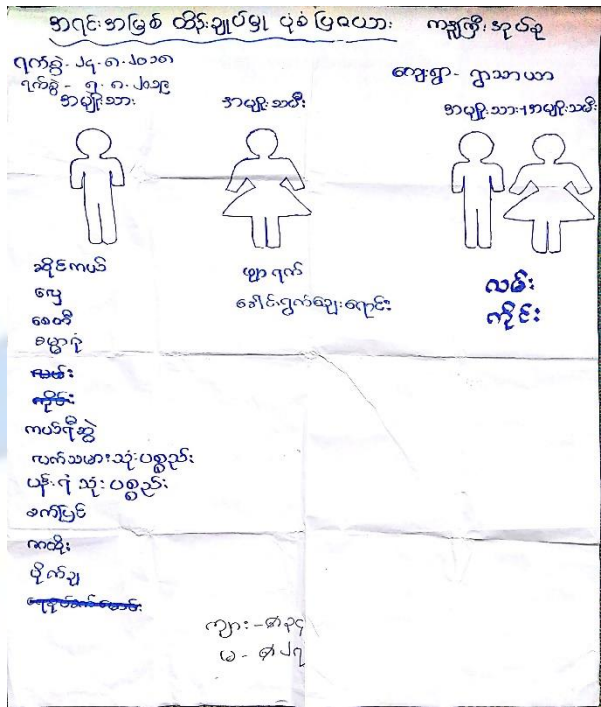 အရင်းအမြစ် ထိန်းချုပ်မှု ပုံစံပြဇယား ကန္ဒကြီးအုပ်စု
ရက်စွဲ - ၂၄.၈.၂၀၁၈
ရက်စွဲ - ၅.၈.၂၀၁၉
ကျေးရွာ - ရွာသာယာ
အမျိုးသား အမျိုးသမီး အမျိုးသား+အမျိုးသမီး
ဆိုင်ကယ်
လှေ
စေတီ
ဓမ္မာရုံ
လမ်း
ကိုင်း
ကယ်ရီဆွဲ
လက်သမားသုံးပစ္စည်း
ပန်းရံ သုံးပစ္စည်း
စက်ပြင်
ကထိုး
ပိုက်ချ
ဖျာရက်
ခေါင်းရွက်ဈေးရောင်း
လမ်း
ကိုင်း
ကျား - ၈၃၄
မ - ၈၂၇